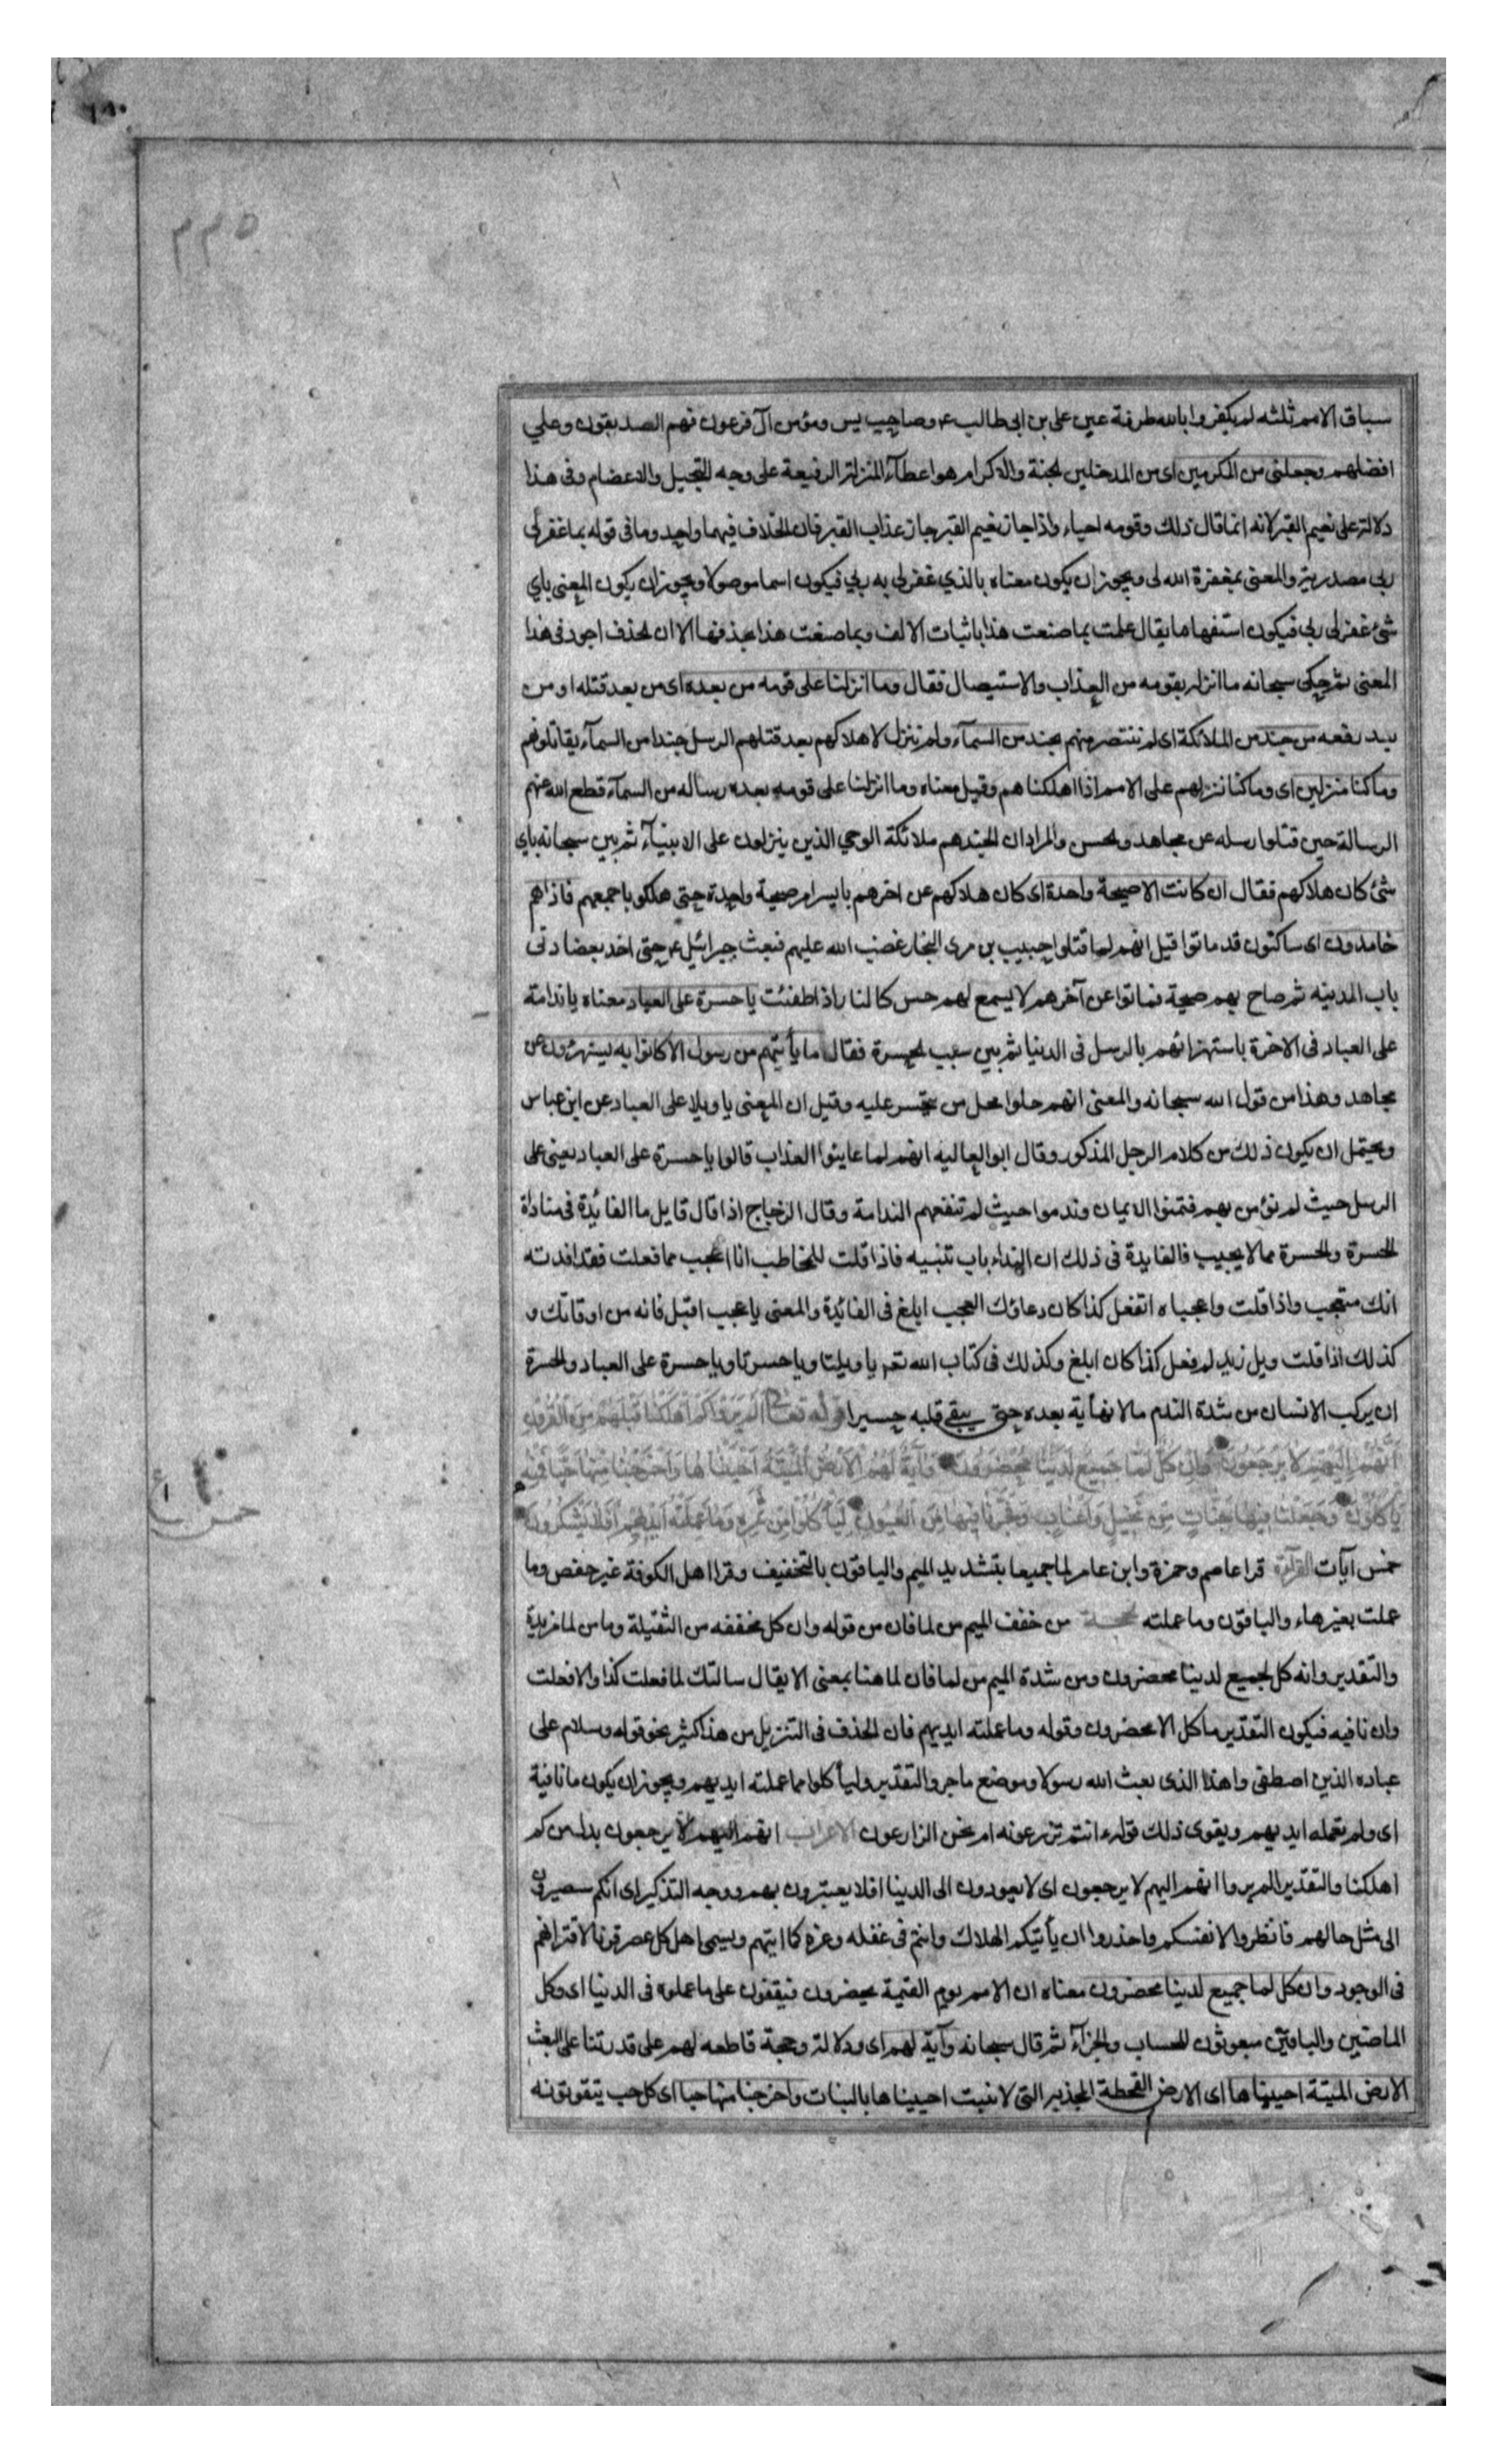 ٢٢٥
سباق الامم ثلثه لم يكفروا بالله طرفة عين على بن ابى طالب ع وصاحب يس ومؤمن آل فرعون فهم الصديقون وعلي
افضلهم وجعلنى من المكرمين اى من المدخلين لجنة والاكرام هو اعطآء المنزلة الرفيعة على وجه التبجيل والاعضام وفى هذا
دلالة على نعيم القبر لانه انما قال ذلك وقومه احياء واذا جاز نعيم القبر جاز عذاب القبر فان الخلاف فيهما واحد وما فى قوله بما غفر لى
ربى مصدرية والمعنى بمغفرة الله لى ويجوز ان يكون معناه بالذي غفر لى به ربي فيكون اسما موصولا ويجوز ان يكون المعنى باي
شئ غفر لى ربى فيكون استفهاما يقال علمت بما صنعت هذا باثبات الالف وبما صنعت هذا بحذفها الا ان لحذف اجود فى هذا
المعنى ثم حكى سبحانه ما انزله بقومه من العذاب والاستيصال فقال وما انزلنا على قومه من بعده اى من بعد قتله او من
بعد رفعه من جند من الملائكة اى لم ننتصر منهم بجند من السمآء ولم ننزل لاهلاكهم بعد قتلهم الرسل جندا من السمآء يقاتلونهم
وما كنا منزلين اى وما كنا ننزلهم على الامم اذا اهلكناهم وقيل معناه وما انزلنا على قومه بعده رساله من السمآء قطع الله عنهم
الرسالة حين قتلوا رسله عن مجاهد ولحسن والمراد ان الجند هم ملائكة الوحي الذين ينزلون على الانبيآء ثم بين سبحانه باي
شئ كان هلاكهم فقال ان كانت الا صيحة واحدة اى كان هلاكهم عن اخرهم بايسر امر صيحة واحدة حتى هلكوا باجمعهم فاذا هم
خامدون اى ساكتون قد ماتوا قيل انهم لما قتلوا حبيب بن مرى النجار غضب الله عليهم فبعث جبرائيل ع حتى اخد بعضادتى
باب المدينه ثم صاح بهم صيحة فماتوا عن آخرهم لا يسمع لهم حس كالنار اذا طفئت يا حسرة على العباد معناه يا ندامة
على العباد فى الاخرة باستهزائهم بالرسل فى الدنيا ثم بين سبب لحسرة فقال ما يأتيهم من رسول الا كانوا به يستهزؤن عن
مجاهد وهذا من قول الله سبحانه والمعنى انهم حلوا محل من يتحسر عليه وقيل ان المعنى يا ويلا على العباد عن ابن عباس
ويحتمل ان يكون ذلك من كلام الرجل المذكور وقال ابو العاليه انهم لما عاينوا العذاب قالوا يا حسرة على العباد يعنى على
الرسل حيث لم نؤمن بهم فتمنوا الايمان وندموا حيث لم تنفعهم الندامة وقال الزجاج اذا قال قايل ما الفائدة فى مناداة
لحسرة ولحسرة مما لا يجيب فالفايدة فى ذلك ان النداء باب تنبيه فاذا قلت للمخاطب انا اعجب مما فعلت فقد افدته
انك متعجب واذا قلت واعجباه اتفعل كذا كان دعاؤك العجب ابلغ فى الفائدة والمعنى يا عجب اقبل فانه من اوقاتك و
كذلك اذا قلت ويل زيد لم فعل كذا كان ابلغ وكذلك فى كتاب الله تعم يا ويلتا ويا حسرتا ويا حسرة على العباد ولحسرة
ان يركب الانسان من شدة الندم ما لا نهأية بعده حتى يبقى قلبه حسيرا قوله تعالى الم يروا كم اهلكنا قبلهم من القرون
انهم اليهم لا يرجعون وان كل لما جميع لدينا محضرون وآية لهم الارض الميتة احييناها واخرجنا منها حبا فمنه
ياكلون وجعلنا فيها جنات من نخيل واعناب وفجرنا فيها من العيون ليأكلوا من ثمره وما عملته ايديهم افلا يشكرون
خمس آيات القرآءة قرا عاصم وحمزة وابن عامر لما جميعا بتشديد الميم والباقون بالتخفيف وقرا اهل الكوفة غير حفص وما
عملت بغير هاء والباقون وما عملته لحجـة من خفف الميم من لما فان من قوله وان كل مخففه من الثقيلة وما من لما مزيدة
والتقدير وانه كل لجميع لدينا محضرون ومن شدة الميم من لما فان لما هنا بمعنى الا يقال سالتك لما فعلت كذا والا فعلت
وان نافيه فيكون التقدير ما كل الا محضرون وقوله وما عملته ايديهم فان الحذف فى التنزيل من هذا كثير نحو قوله وسلام على
عباده الذين اصطفى واهذا الذى بعث الله رسولا وموضع ما جر والتقدير وليأكلوا مما عملته ايديهم ويجوز ان يكون ما نافية
اى ولم تعمله ايديهم ويقوى ذلك قوله ءانتم تزرعونه ام نحن الزارعون الاعراب انهم اليهم لا يرجعون بدل من كم
اهلكنا والتقدير الم يروا انهم اليهم لا يرجعون اى لا يعودون الى الدنيا افلا يعتبرون بهم ووجه التذكير اى انكم ستصيرون
الى مثل حالهم فانظروا لانفسكم واحذروا ان يأتيكم الهلاك وانتم فى غفله وغره كما اتيهم ويسمى اهل كل عصر قرنا لاقترانهم
فى الوجود وان كل لما جميع لدينا محضرون معناه ان الامم يوم القيمة يحضرون فيقفون على ما عملوه فى الدنيا اى وكل
الماضين والباقين مبعوثون للحساب والجزآء ثم قال سبحانه وآية لهم اى ودلالة وحجة قاطعه لهم على قدرتنا على البعث
الارض الميتة احييناها اى الارض القحطة المجذبه التى لا تنبت احييناها بالنبات واخرجنا منها حبا اى كل حب يتقوتونه